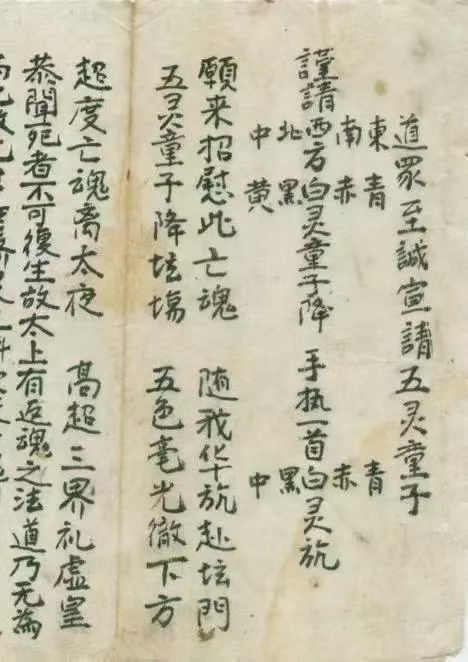 道眾至誠宣請五灵童子
東 青 青
南 赤 赤
謹請西方白灵童子降 手执一首白灵旂
北 黑 黑
中 黄 中
願来招慰此亡魂 随我华旂赴坛門
五灵童子降坛場 五色毫光徹下方
超度亡魂離太夜 高超三界礼虚皇
恭聞死者不可復生故太上有返魂之法道乃无為